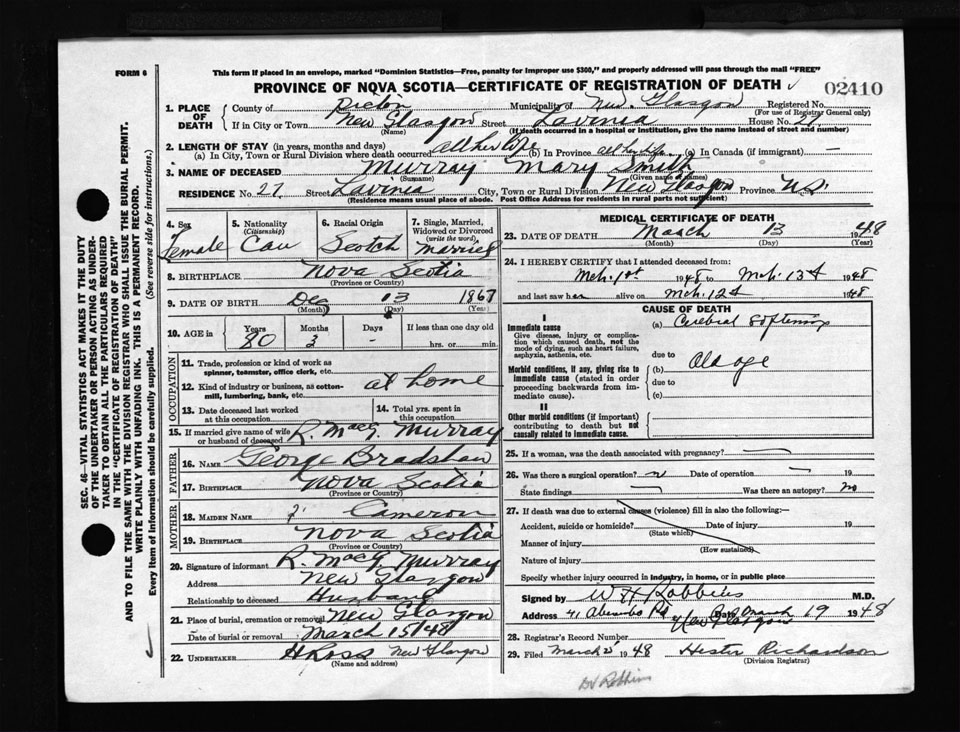 FORM 6
This form if placed in an envelope, marked "Dominion Statistics—Free, penalty for improper use $300," and properly addressed will pass through the mail "FREE"
PROVINCE OF NOVA SCOTIA—CERTIFICATE OF REGISTRATION OF DEATH
02410
1. PLACE OF DEATH County of Pictou Municipality of New Glasgow Registered No.
(For use of Registrar General only)
If in City or Town New Glasgow Street Lavinia House No. 27
(Name) (If death occurred in a hospital or institution, give the name instead of street and number)
2. LENGTH OF STAY (in years, months and days)
(a) In City, Town or Rural Division where death occurred all her life (b) In Province all her life (c) In Canada (if immigrant) —
3. NAME OF DECEASED Murray Mary Smith
(Surname) (Given name or names)
RESIDENCE No. 27 Street Lavinia City, Town or Rural Division New Glasgow Province N.S.
(Residence means usual place of abode. Post Office Address for residents in rural parts not sufficient)
4. Sex Female
5. Nationality (Citizenship) Can
6. Racial Origin Scotch
7. Single, Married, Widowed or Divorced (write the word) Married
8. BIRTHPLACE Nova Scotia
(Province or Country)
9. DATE OF BIRTH Dec 13 1867
(Month) (Day) (Year)
10. AGE in Years 80 Months 3 Days - If less than one day old hrs. or min.
OCCUPATION
11. Trade, profession or kind of work as spinner, teamster, office clerk, etc.
12. Kind of industry or business, as cotton-mill, lumbering, bank, etc. at home
13. Date deceased last worked at this occupation
14. Total yrs. spent in this occupation
15. If married give name of wife or husband of deceased R. MacG. Murray
FATHER
16. NAME George Bradshaw
17. BIRTHPLACE Nova Scotia
(Province or Country)
MOTHER
18. MAIDEN NAME ? Cameron
19. BIRTHPLACE Nova Scotia
(Province or Country)
20. Signature of informant R. MacG. Murray
Address New Glasgow
Relationship to deceased Husband
21. Place of burial, cremation or removal New Glasgow
Date of burial or removal March 15/48
22. UNDERTAKER H Ross New Glasgow
(Name and address)
MEDICAL CERTIFICATE OF DEATH
23. DATE OF DEATH March 13 1948
(Month) (Day) (Year)
24. I HEREBY CERTIFY that I attended deceased from:
Mch. 1st 1948 to Mch. 13th 1948
and last saw her alive on Mch. 12th 1948
CAUSE OF DEATH
I
Immediate cause
Give disease, injury or complication which caused death, not the mode of dying, such as heart failure, asphyxia, asthenia, etc.
(a) Cerebral Softening
due to
Morbid conditions, if any, giving rise to immediate cause (stated in order proceeding backwards from immediate cause)
(b) Old age
due to
(c)
II
Other morbid conditions (if important) contributing to death but not causally related to immediate cause.
25. If a woman, was the death associated with pregnancy? —
26. Was there a surgical operation? Date of operation — 19
State findings — Was there an autopsy? no
27. If death was due to external causes (violence) fill in also the following:—
Accident, suicide or homicide? Date of injury 19
(State which)
Manner of injury
(How sustained)
Nature of injury
Specify whether injury occurred in industry, in home, or in public place
Signed by W H Robbins M.D.
Address 41 Rd New Glasgow Date March 19 1948
28. Registrar's Record Number
29. Filed March 1948 Hester Richardson
(Division Registrar)
Dr Robbins
SEC. 46—VITAL STATISTICS ACT MAKES IT THE DUTY
OF THE UNDERTAKER OR PERSON ACTING AS UNDER-
TAKER TO OBTAIN ALL THE PARTICULARS REQUIRED
IN THE "CERTIFICATE OF REGISTRATION OF DEATH"
AND TO FILE THE SAME WITH THE DIVISION REGISTRAR WHO SHALL ISSUE THE BURIAL PERMIT.
WRITE PLAINLY WITH UNFADING INK. THIS IS A PERMANENT RECORD.
Every item of information should be carefully supplied. (See reverse side for instructions.)